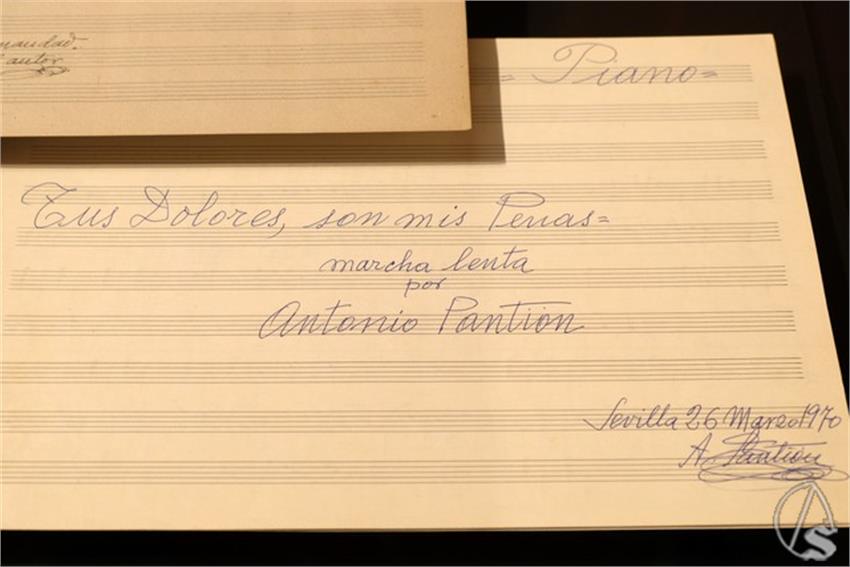 autor
= Piano =
Tus Dolores, son mis Penas =
marcha lenta
por
Antonio Pantión
Sevilla 26 Marzo 1970
A. Pantión
AS